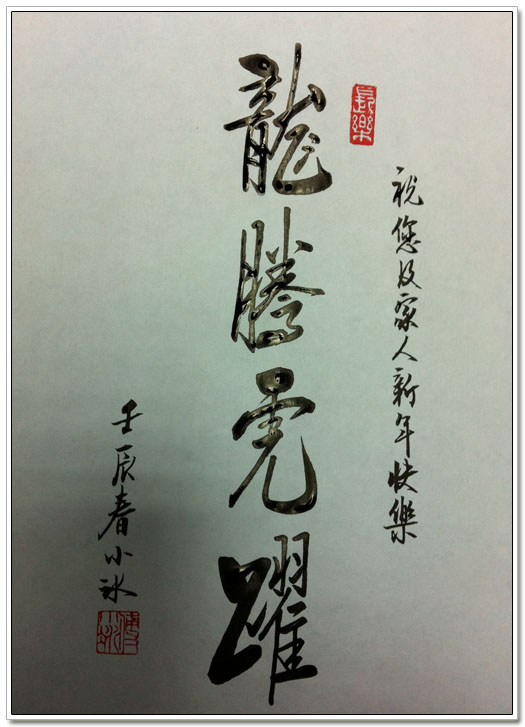 長樂
祝您及家人新年快樂
龍騰虎躍
壬辰春小冰